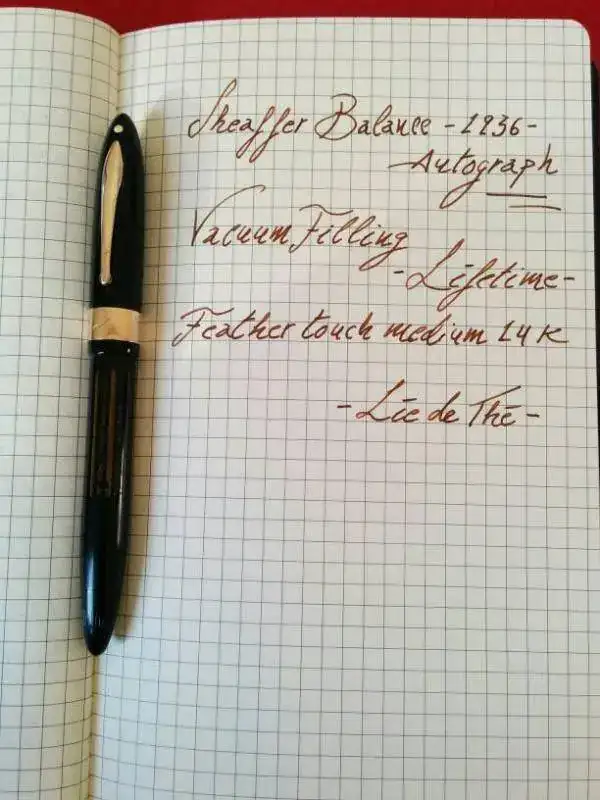 Sheaffer Balance - 1936 -
Autograph
Vacuum Filling
- Lifetime -
Feather touch medium 14 K
- Lie de Thé -